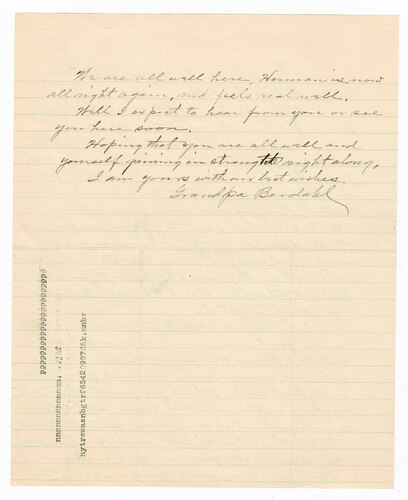 We are all well here, Herman is now
all right again, and feels real well.
Well I expect to hear from you or see
you here soon.
Hoping that you are all well and
yourself gaining in strength right along,
I am yours with our best wishes
Grandpa Berdahl